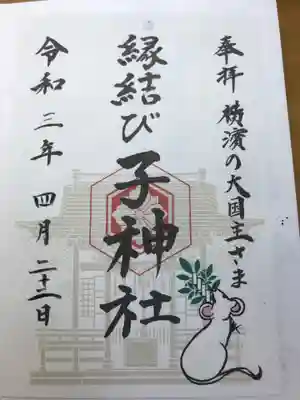 奉拝 横濱の大国主さま
縁結び子神社
令和三年 四月 二十二日